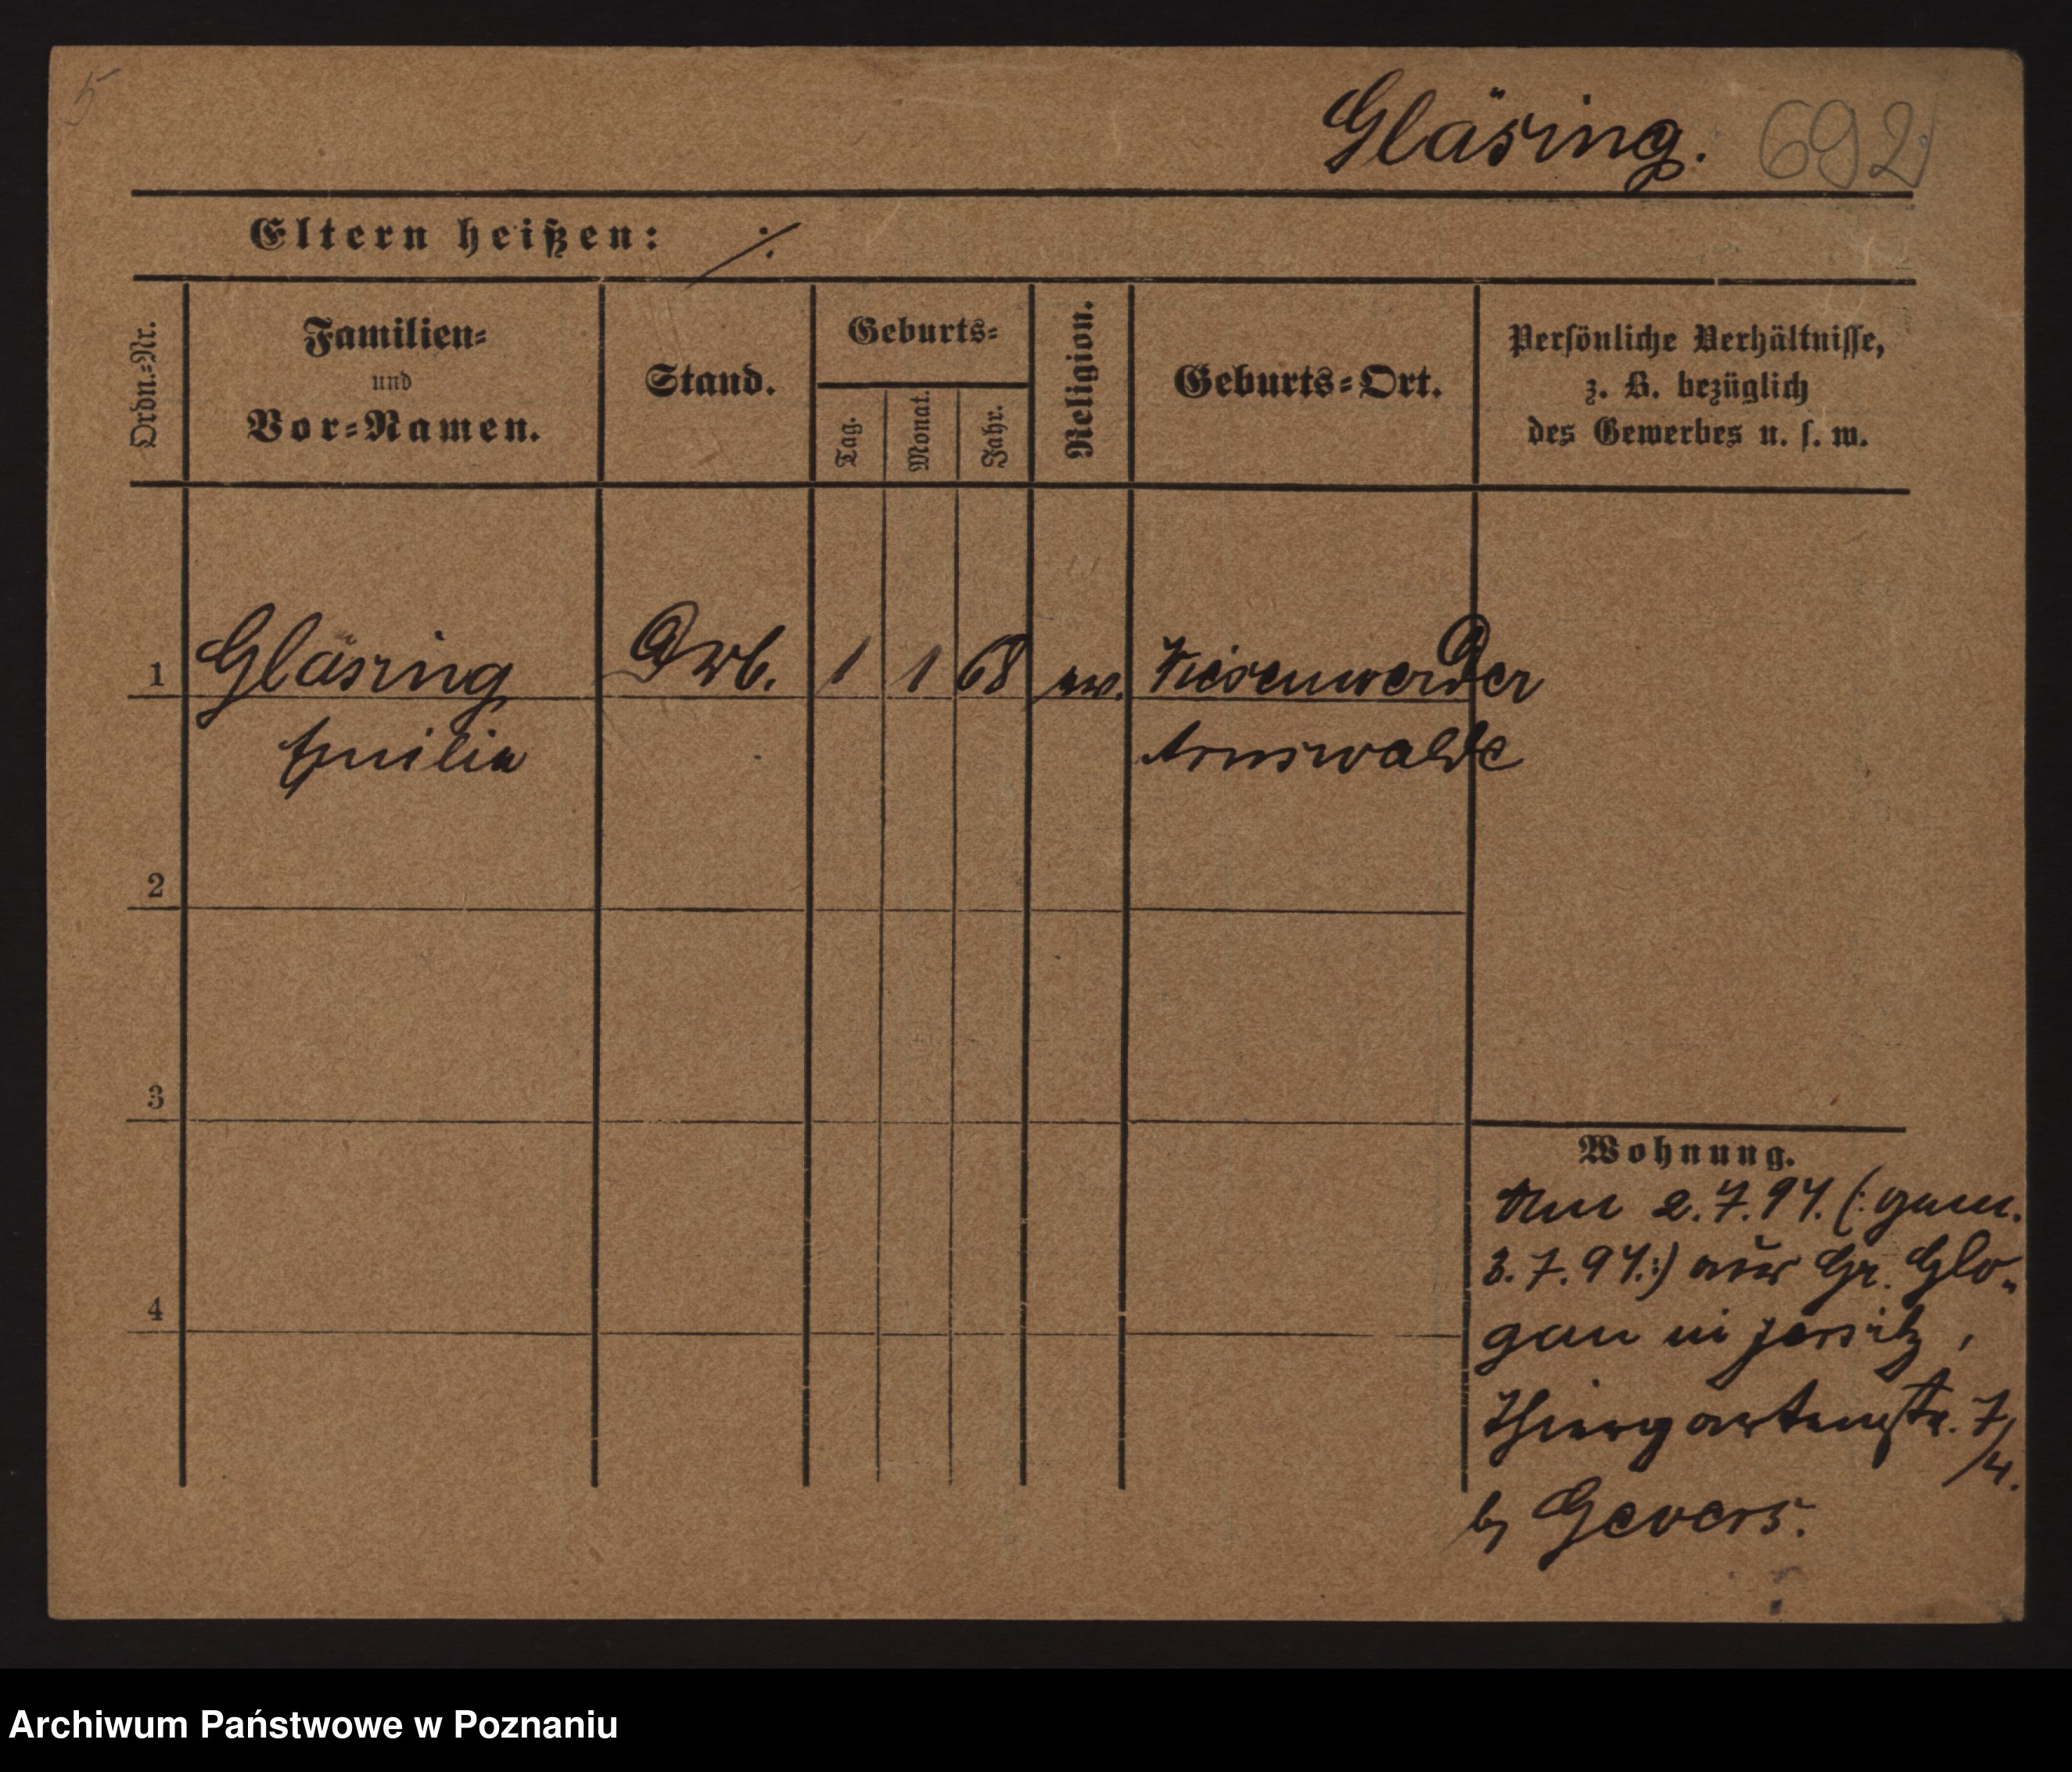 5
Gläsing. 692
Eltern heißen: ·/.
Ordn.=Nr.
Familien=
und
Vor=Namen.
Stand.
Geburts=
Tag.
Monat.
Jahr.
Religion.
Geburts=Ort.
Persönliche Verhältnisse,
z. B. bezüglich
des Gewerbes u. s. w.
1 Gläsing Arb. 1 1 68 ev. Wiesenwerder
Emilie Arnswalde
2
3
4
Wohnung.
Am 2.7.94. (: gem.
3.7.94.:) aus Gr. Glo-
gau in Jersitz,
Thiergartenstr. 7/4.
b/ Gevers.
Archiwum Państwowe w Poznaniu